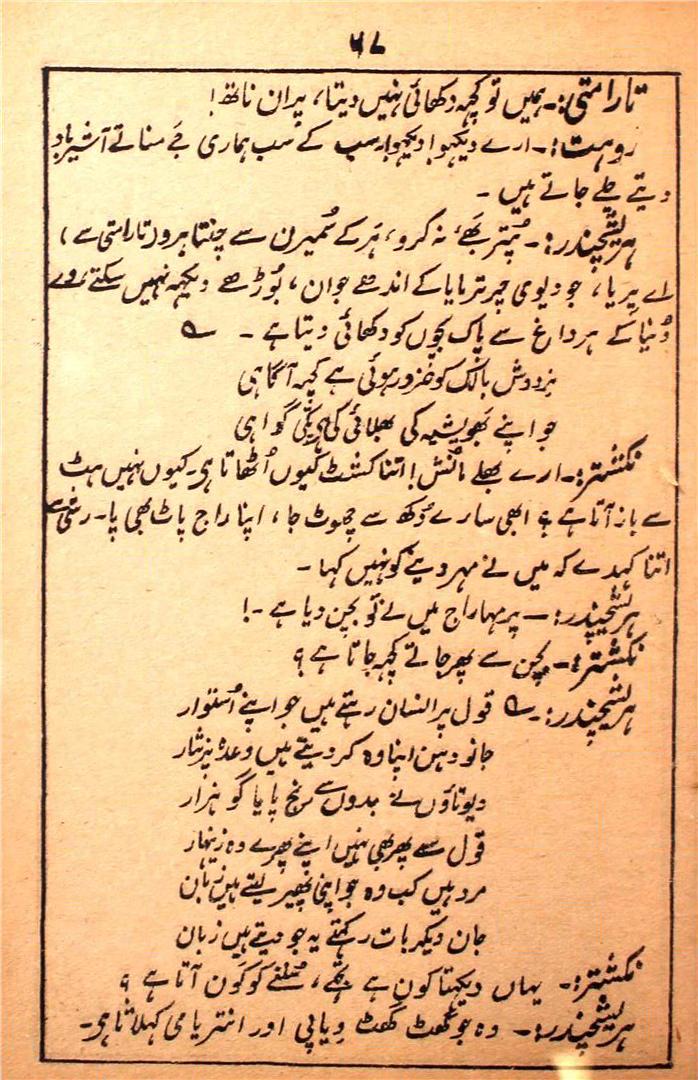 ۵۶۷
تارامتی:۔ ہمیں تو کچہ دکھائی نہیں دیتا، پران ناتھ!
روہت:۔ ارے دیکہو! دیکہو! سب کے سب ہماری جَے مناتے آشیرباد
دیتے چلے جاتے ہیں ۔
ہریشچندر:۔ پُتر بَھے، نہ کرو، ہَر کے سُمیرن سے چنتا ہرو (تارامتی سے)
اے پریا، جو دیوی چرتر مایا کے اندھے جوان، بُوڑھے دیکہہ نہیں سکتے، وے
دُنیا کے ہر داغ سے پاک بچوں کو دکھائی دیتا ہے ۔
نردوش بالک کو ضرور ہوئی ہے کچہ آگاہی
جو اپنے بھویشیہ کی بھلائی کی گواہی
نکشتر:۔ ارے بھلے مانُش! اتنا کشٹ کیوں اُٹھاتا ہی۔ کیوں نہیں ہٹ
سے باز آتا ہے؟ ابھی سارے دُکھ سے چھوٹ جا، اپنا راج پاٹ بھی پا۔
اتنا کہدے کہ میں نے مہر دینے کو نہیں کہا ۔
ہریشچندر:۔ پر مہاراج میں نے تو بچن دیا ہے ۔!
نکشتر:۔ بچن سے پھر جانے کچہ جاتا ہے؟
ہریشچندر:۔ قول پر انسان رہتے ہیں جو اپنے اُستوار
جان و دہن اپنا وہ کر دیتے ہیں وعدہ پر نثار
دیوتاؤں نے بدوں سے رنج پایا گو ہزار
قول سے پھر بھی نہیں اپنے پھرے وہ زینہار
مرد ہیں کب وہ جو اپنی پھیر لیتے ہیں زبان
جان دیکر بات رکہتے یہ جو دیتے ہیں زبان
نکشتر:۔ یہاں دیکہتا کون ہے تجھے، سُننے کو کون آتا ہے؟
ہریشچندر:۔ وہ جو گھٹ گھٹ ویاپی اور انتریامی کہلاتا ہی۔